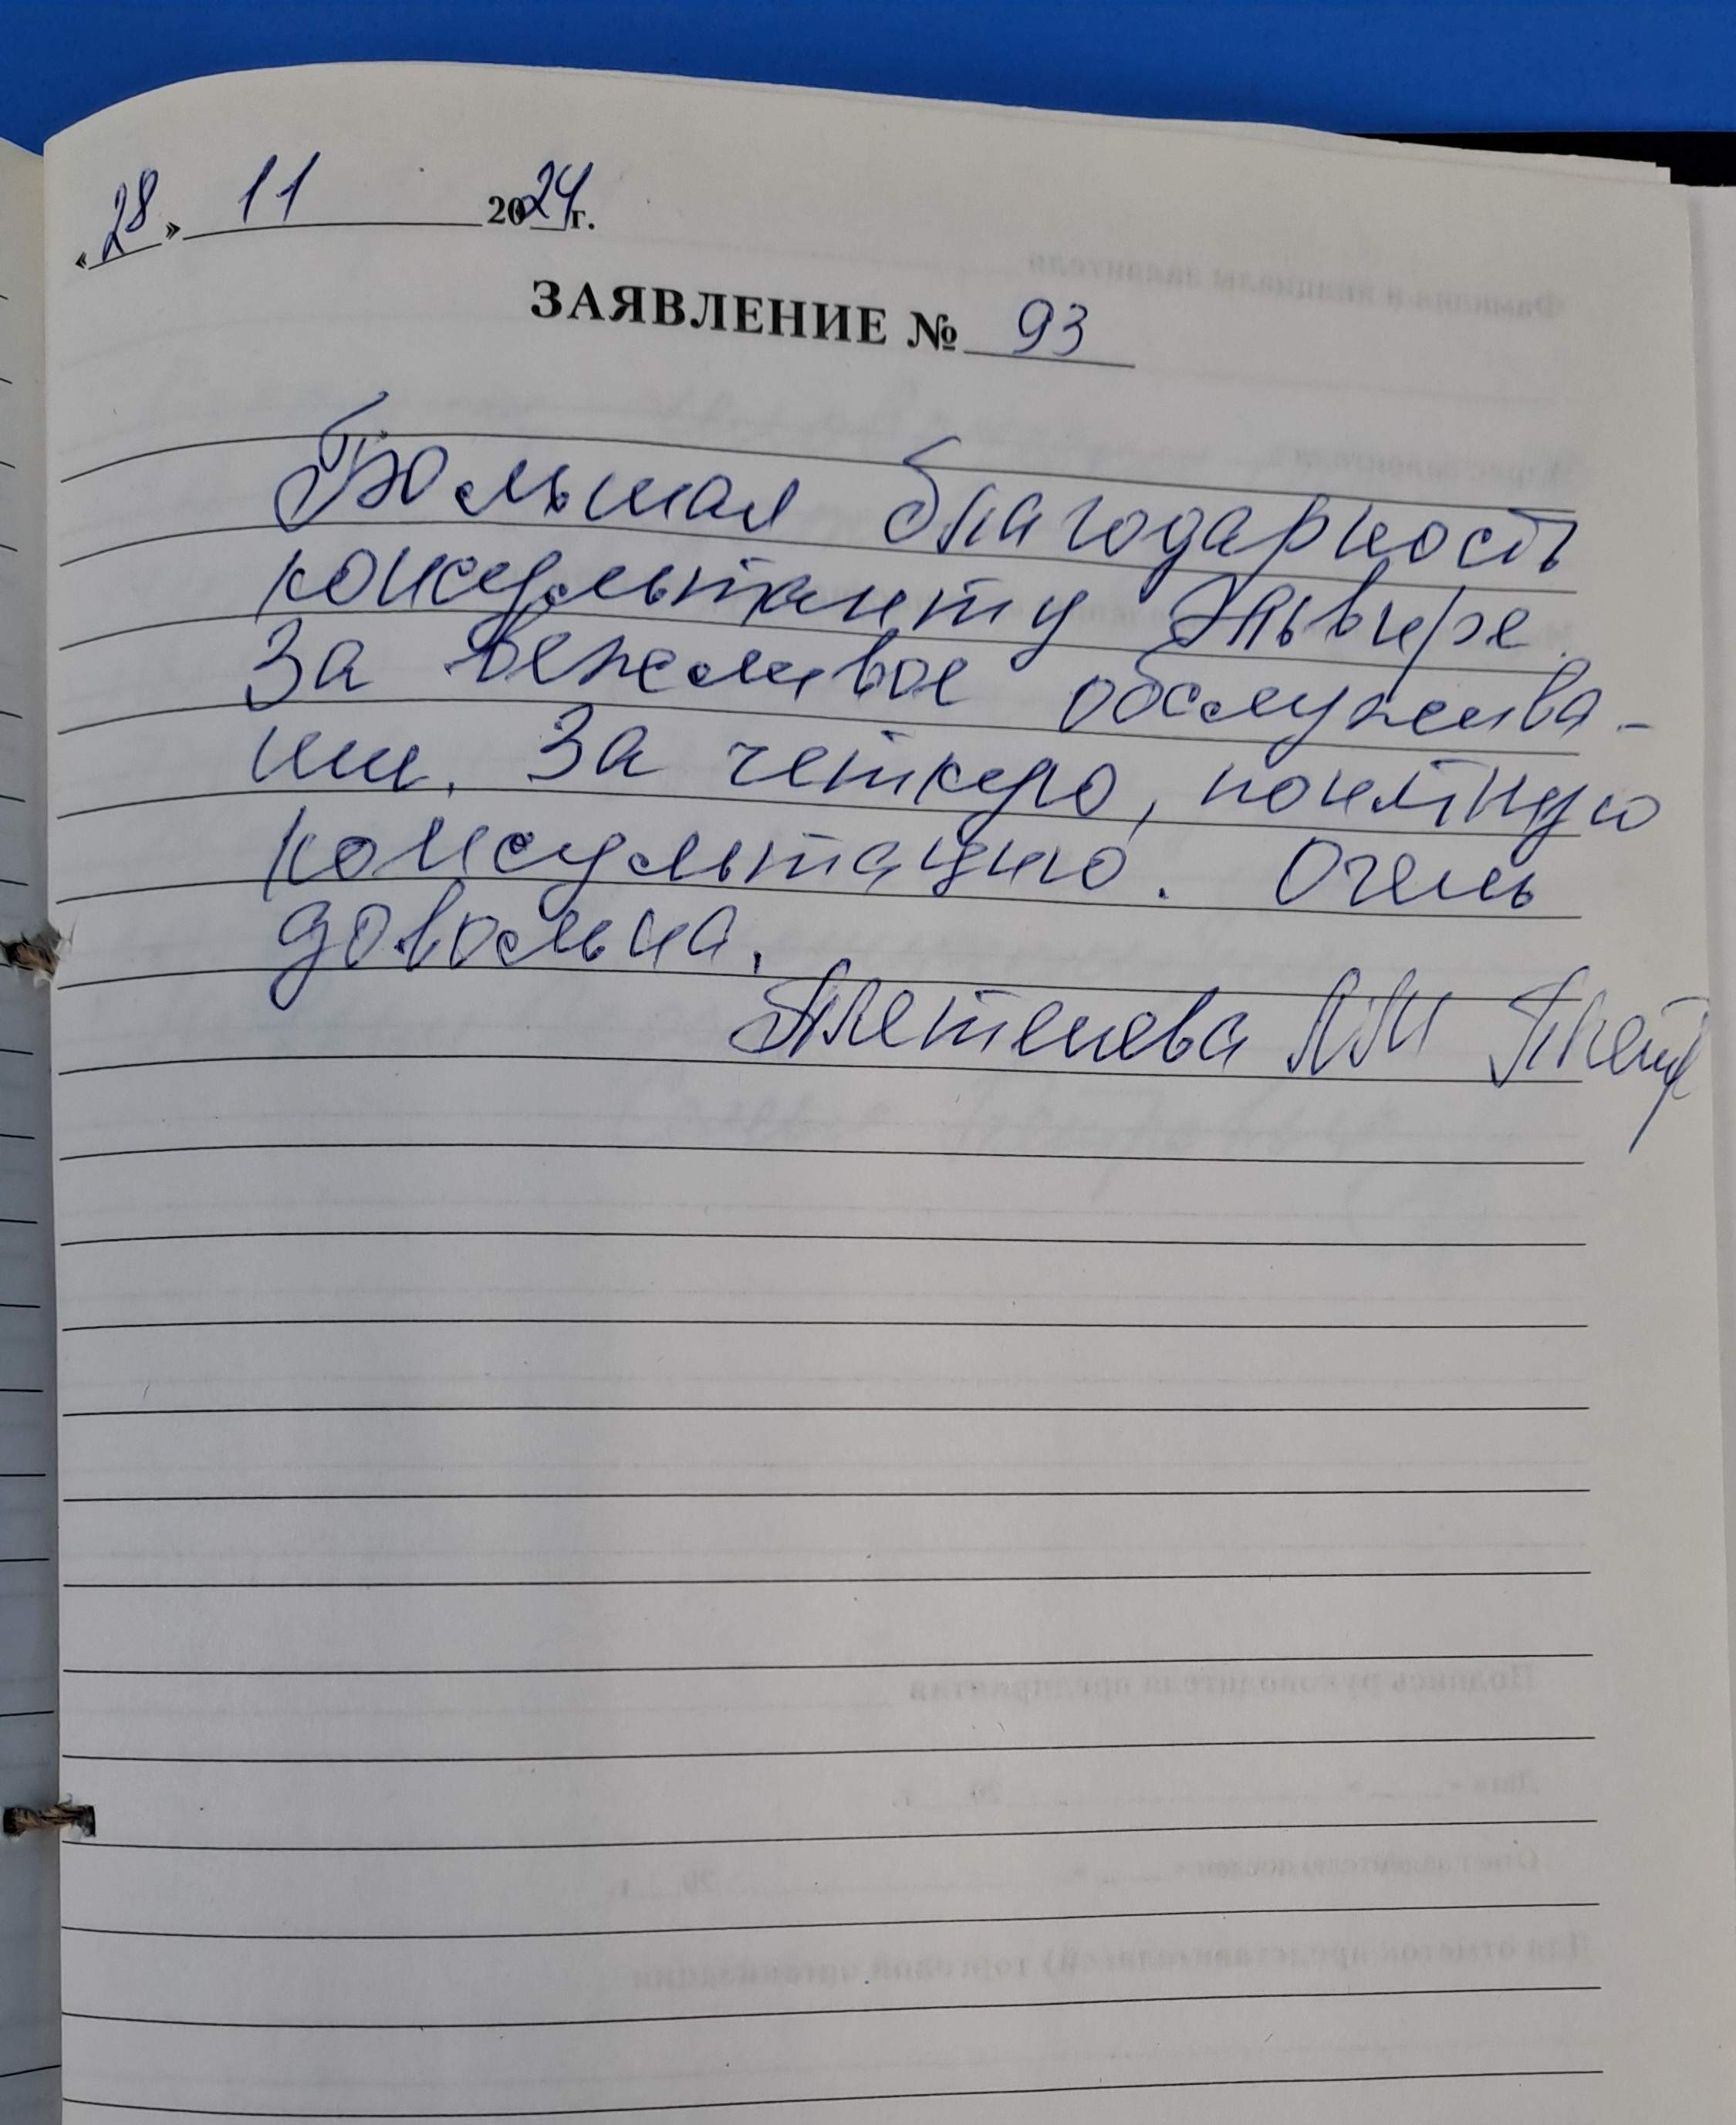 «28» 11 2024г.
ЗАЯВЛЕНИЕ № 93
Большая благодарность
консультанту Эльвире.
За вежливое обслужива-
нии. За четкую, понятную
консультацию. Очень
довольна.